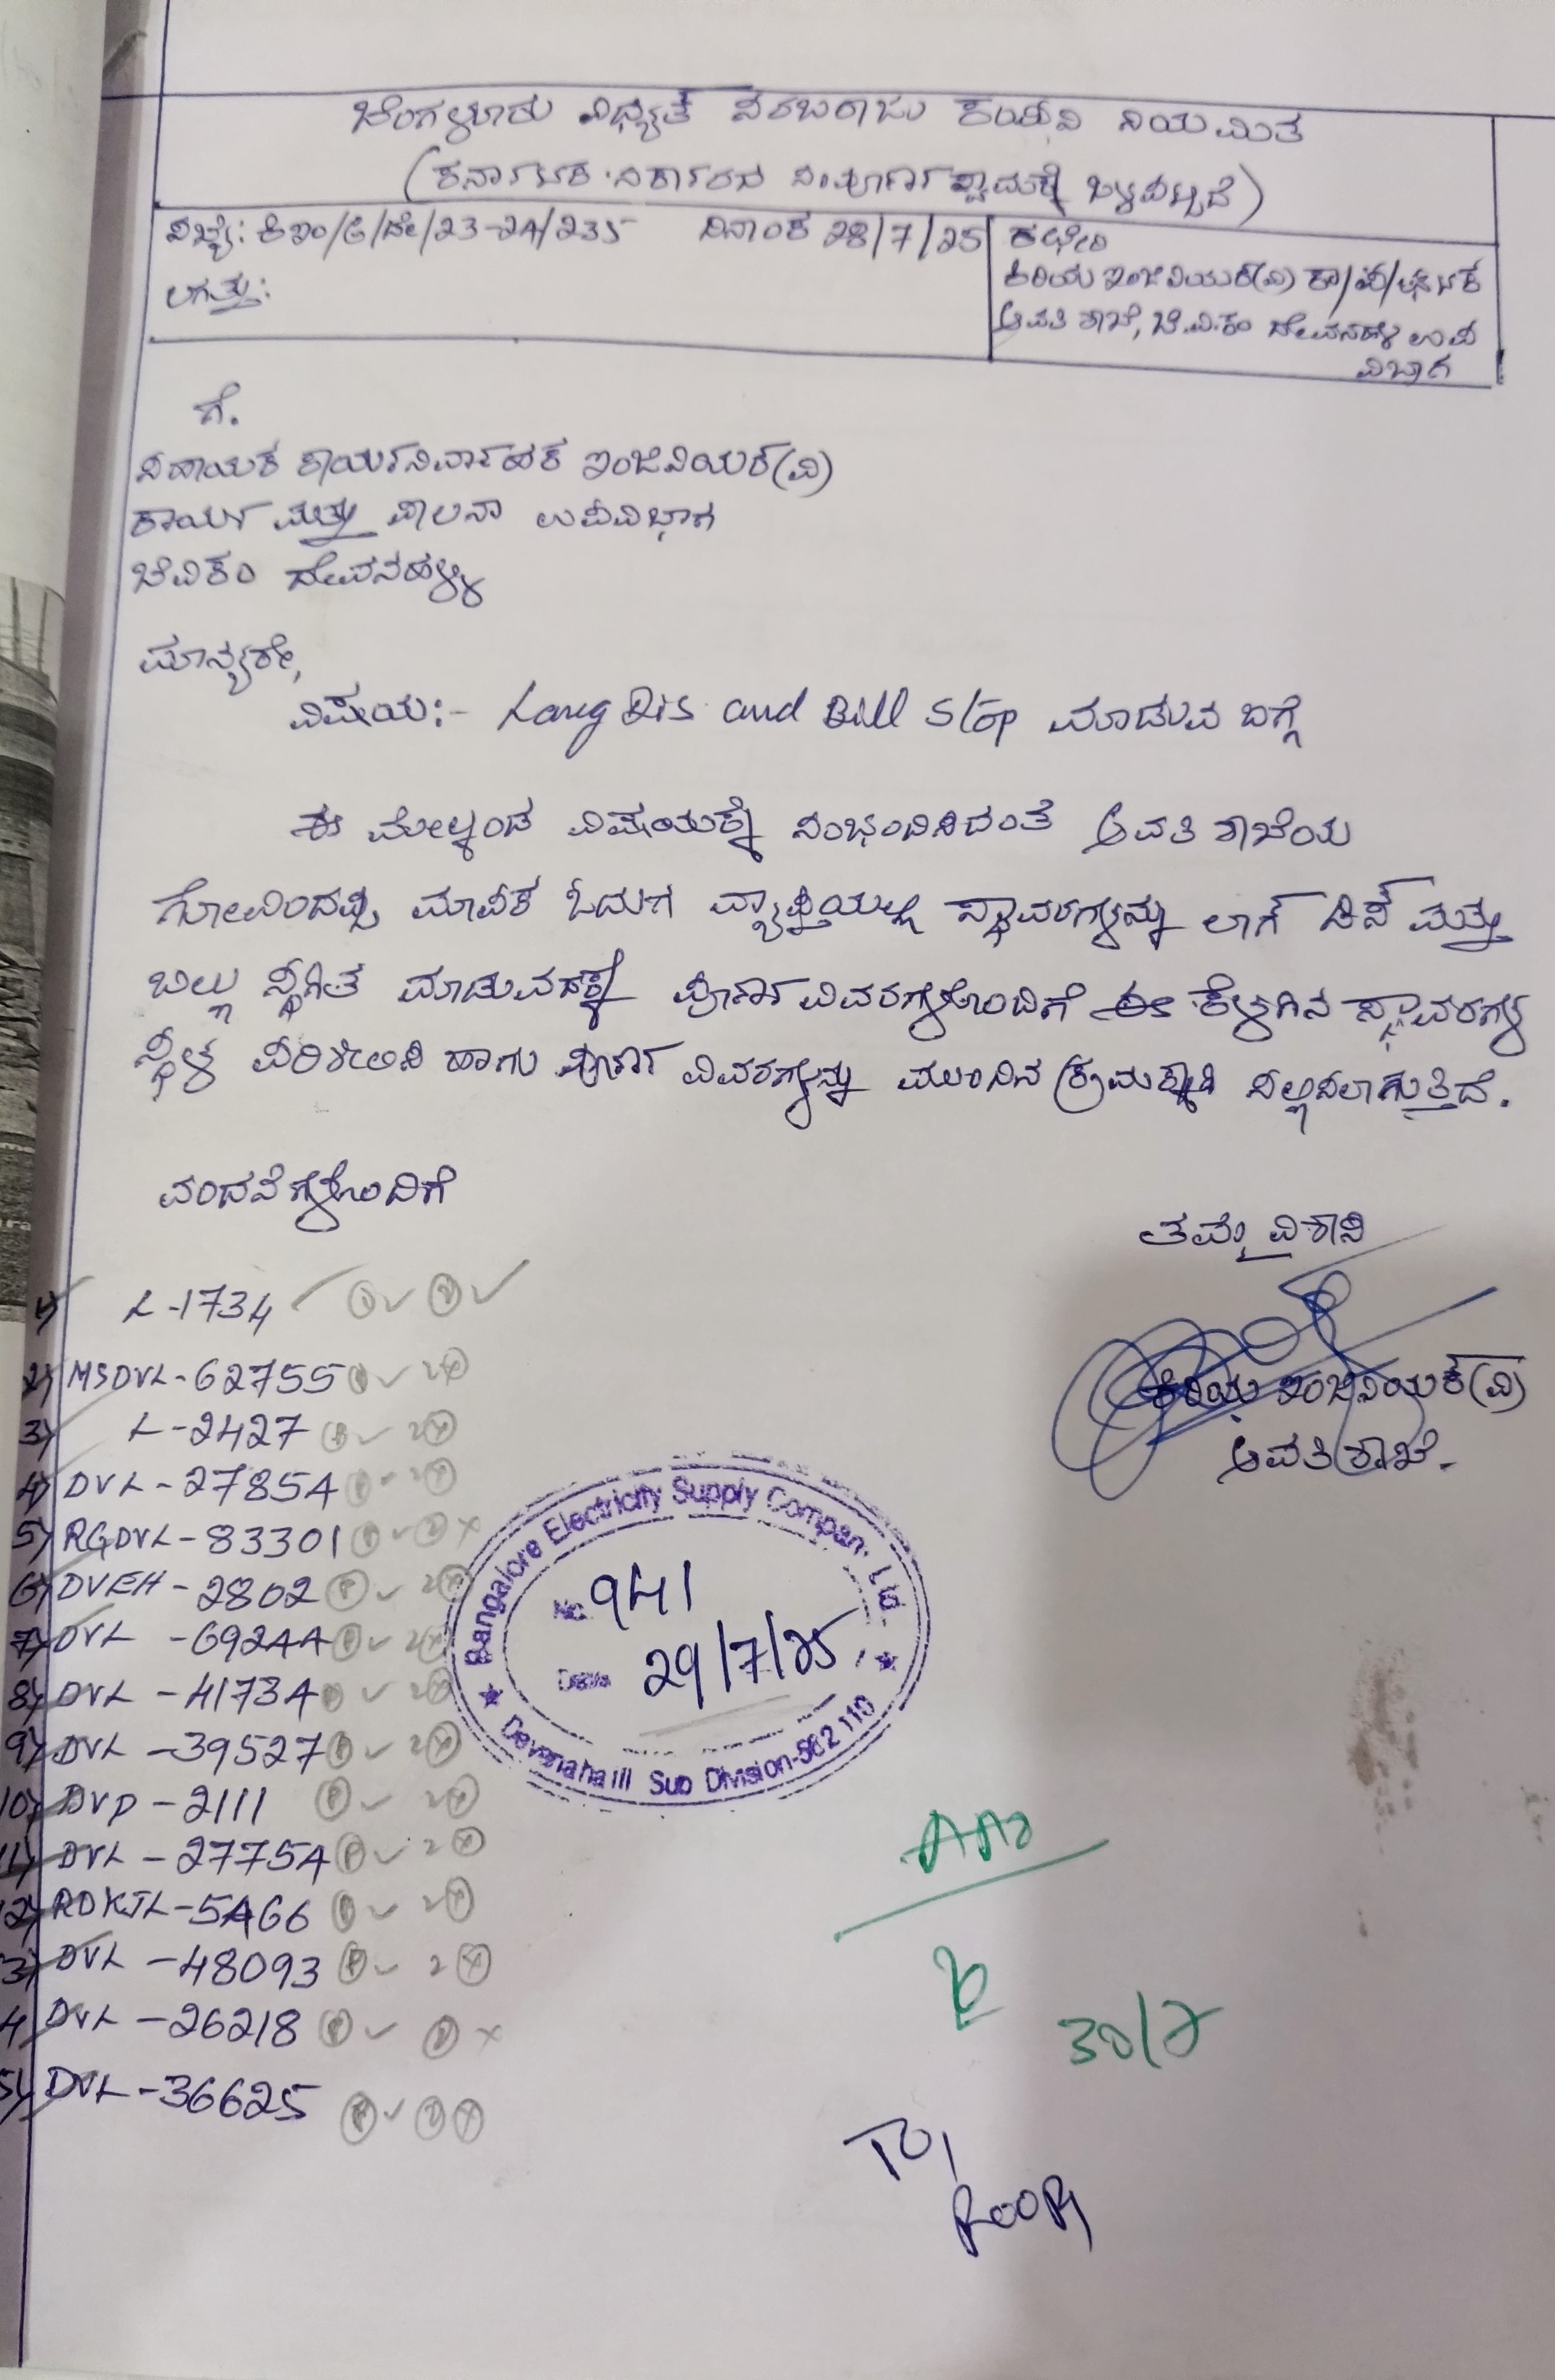 ಬೆಂಗಳೂರು ವಿಧ್ಯುತ್ ಸರಬರಾಜು ಕಂಪನಿ ನಿಯಮಿತ
(ಕರ್ನಾಟಕ ಸರ್ಕಾರದ ಸಂಪೂರ್ಣ ಸ್ವಾಮ್ಯಕ್ಕೆ ಒಳಪಟ್ಟಿದೆ)
ಸಂಖ್ಯೆ: ಕಿಇಂ/ಆ/ದೇ/23-24/235 ದಿನಾಂಕ 28/7/25
ಲಗತ್ತು:
ಕಛೇರಿ
ಕಿರಿಯ ಇಂಜಿನಿಯರ್(ವಿ) ಕಾ/ಪಾ/ಘಟಕ
ಆವತಿ ಶಾಖೆ, ಬೆ.ವಿ.ಕಂ ದೇವನಹಳ್ಳಿ ಉಪ
ವಿಭಾಗ
ಗೆ.
ಸಹಾಯಕ ಕಾರ್ಯನಿರ್ವಾಹಕ ಇಂಜಿನಿಯರ್(ವಿ)
ಕಾರ್ಯ ಮತ್ತು ಪಾಲನಾ ಉಪವಿಭಾಗ
ಬೆವಿಕಂ ದೇವನಹಳ್ಳಿ
ಮಾನ್ಯರೇ,
ವಿಷಯ:- Long Dis and Bill Stop ಮಾಡುವ ಬಗ್ಗೆ
ಈ ಮೇಲ್ಕಂಡ ವಿಷಯಕ್ಕೆ ಸಂಭಂದಿಸಿದಂತೆ ಆವತಿ ಶಾಖೆಯ
ಗೋವಿಂದಪ್ಪ ಮಾಪಕ ಓದುಗ ವ್ಯಾಪ್ತಿಯಲ್ಲಿ ಸ್ಥಾವರಗಳನ್ನು ಲಾಗ್ ಡಿಸ್ ಮತ್ತು
ಬಿಲ್ಲು ಸ್ಥಗಿತ ಮಾಡುವದಕ್ಕೆ ಪೂರ್ಣ ವಿವರಗಳೊಂದಿಗೆ ಈ ಕೆಳಗಿನ ಸ್ಥಾವರಗಳ
ಸ್ಥಳ ಪರಿಶೀಲಿಸಿ ಹಾಗು ಪೂರ್ಣ ವಿವರಗಳನ್ನು ಮುಂದಿನ ಕ್ರಮಕ್ಕಾಗಿ ಸಲ್ಲಿಸಲಾಗುತ್ತಿದೆ.
ವಂದನೆಗಳೊಂದಿಗೆ
ತಮ್ಮ ವಿಶಾಸಿ
ಕಿರಿಯ ಇಂಜಿನಿಯರ್(ವಿ)
ಆವತಿ ಶಾಖೆ.
1) L-1734
2) MSDVL-62755
3) L-2427
4) DVL-27854
5) RGDVL-83301
6) DVEH-2802
7) DVL-69244
8) DVL-41734
9) DVL-39527
10) DVP-2111
11) DVL-27754
12) RDKJL-5466
13) DVL-48093
14) DVL-26218
15) DVL-36625
Bangalore Electricity Supply Company Ltd.
No. 941
Date 29/7/25
Devanahalli Sub Division-562 110
30/7
To,